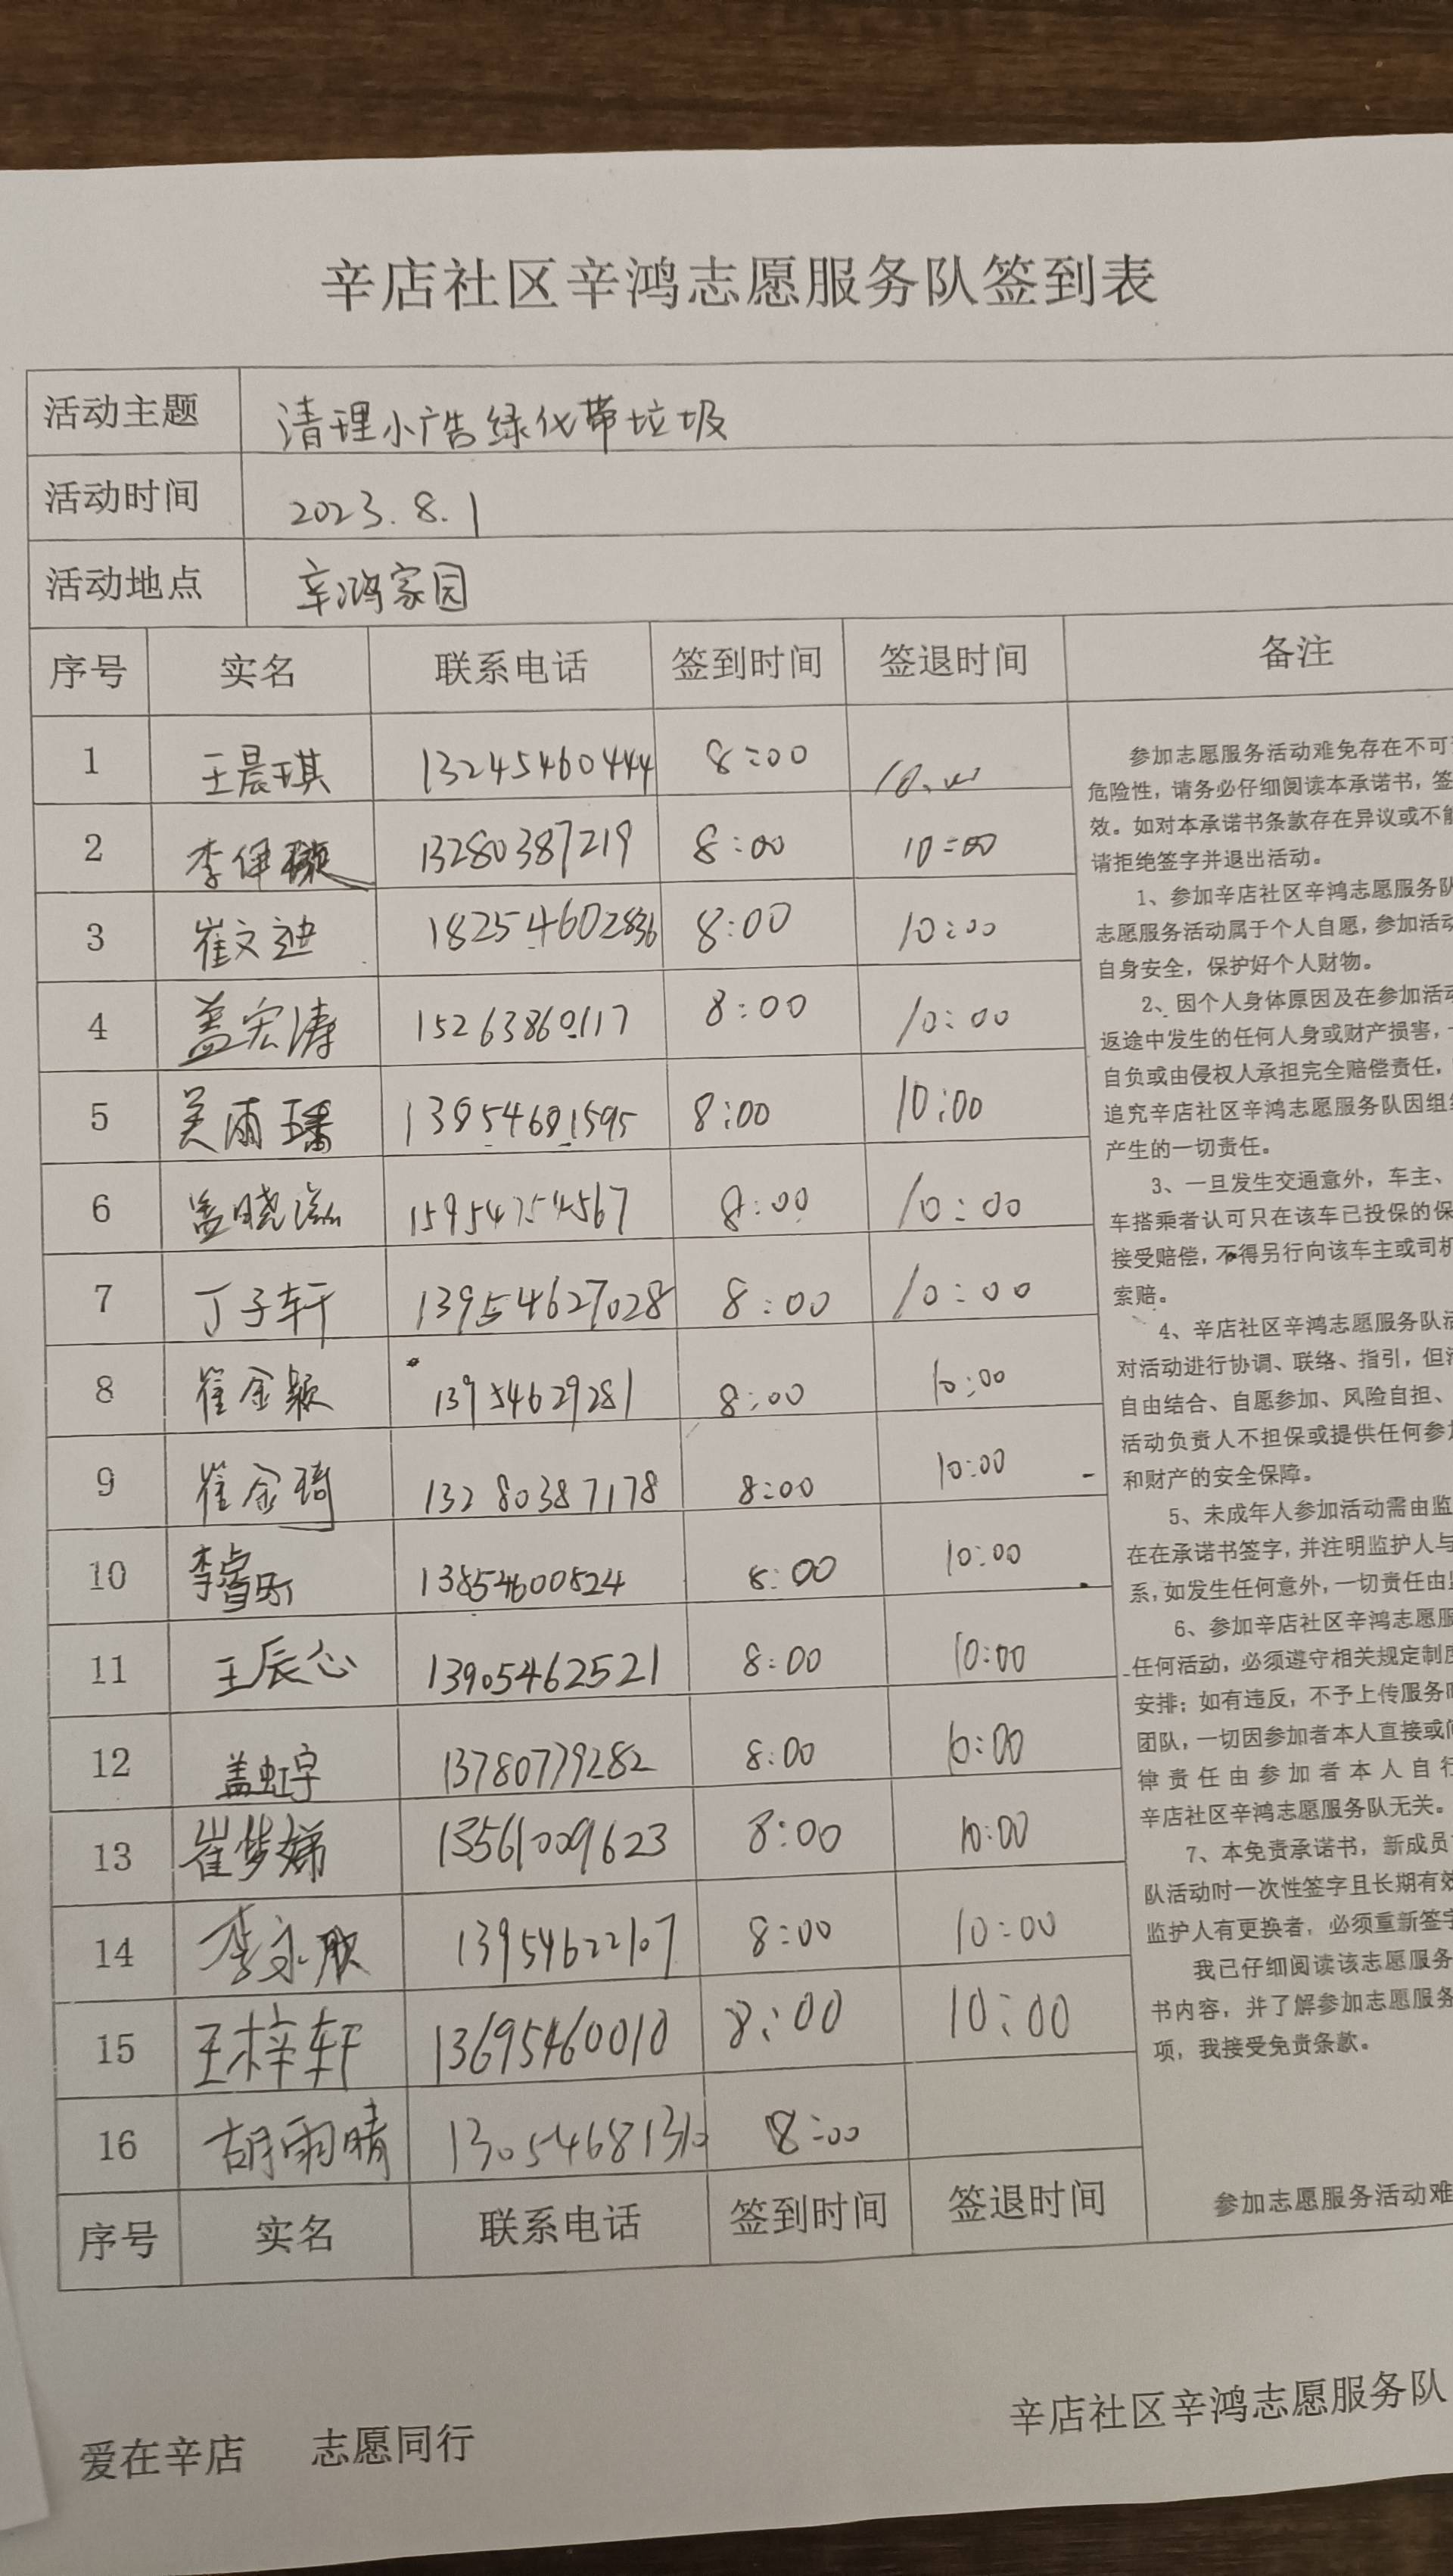 辛店社区辛鸿志愿服务队签到表
活动主题 清理小广告绿化带垃圾
活动时间 2023.8.1
活动地点 辛鸿家园
序号 实名 联系电话 签到时间 签退时间 备注
1 王晨琪 13245460444 8:00
2 李伊璇 13280387219 8:00 10:00
3 崔文迪 18254602836 8:00 10:00
4 盖宏涛 15263860117 8:00 10:00
5 吴雨璠 13854681595 8:00 10:00
6 盖晓滋 15954754567 8:00 10:00
7 丁子轩 13954627028 8:00 10:00
8 崔金颖 13954629281 8:00 10:00
9 崔金琦 13280387178 8:00 10:00
10 李睿 13854600824 8:00 10:00
11 王辰心 13905462521 8:00 10:00
12 盖虹宇 13780779282 8:00 10:00
13 崔梦娣 13561009623 8:00 10:00
14 李永 13954622107 8:00 10:00
15 王梓轩 13695460010 8:00 10:00
16 胡雨晴 13054681310 8:00
序号 实名 联系电话 签到时间 签退时间
参加志愿服务活动难免存在不可
危险性，请务必仔细阅读本承诺书，签
效。如对本承诺书条款存在异议或不能
请拒绝签字并退出活动。
1、参加辛店社区辛鸿志愿服务队
志愿服务活动属于个人自愿，参加活动
自身安全，保护好个人财物。
2、因个人身体原因及在参加活动
返途中发生的任何人身或财产损害，
自负或由侵权人承担完全赔偿责任，
追究辛店社区辛鸿志愿服务队因组织
产生的一切责任。
3、一旦发生交通意外，车主、
车搭乘者认可只在该车已投保的保
接受赔偿，不得另行向该车主或司机
索赔。
4、辛店社区辛鸿志愿服务队活
对活动进行协调、联络、指引，但活
自由结合、自愿参加、风险自担、
活动负责人不担保或提供任何参加
和财产的安全保障。
5、未成年人参加活动需由监
在在承诺书签字，并注明监护人与
系，如发生任何意外，一切责任由监
6、参加辛店社区辛鸿志愿服
任何活动，必须遵守相关规定制度
安排；如有违反，不予上传服务时
团队，一切因参加者本人直接或间
律责任由参加者本人自行
辛店社区辛鸿志愿服务队无关。
7、本免责承诺书，新成员
队活动时一次性签字且长期有效
监护人有更换者，必须重新签字
我已仔细阅读该志愿服务
书内容，并了解参加志愿服务
项，我接受免责条款。
参加志愿服务活动难
辛店社区辛鸿志愿服务队
爱在辛店 志愿同行